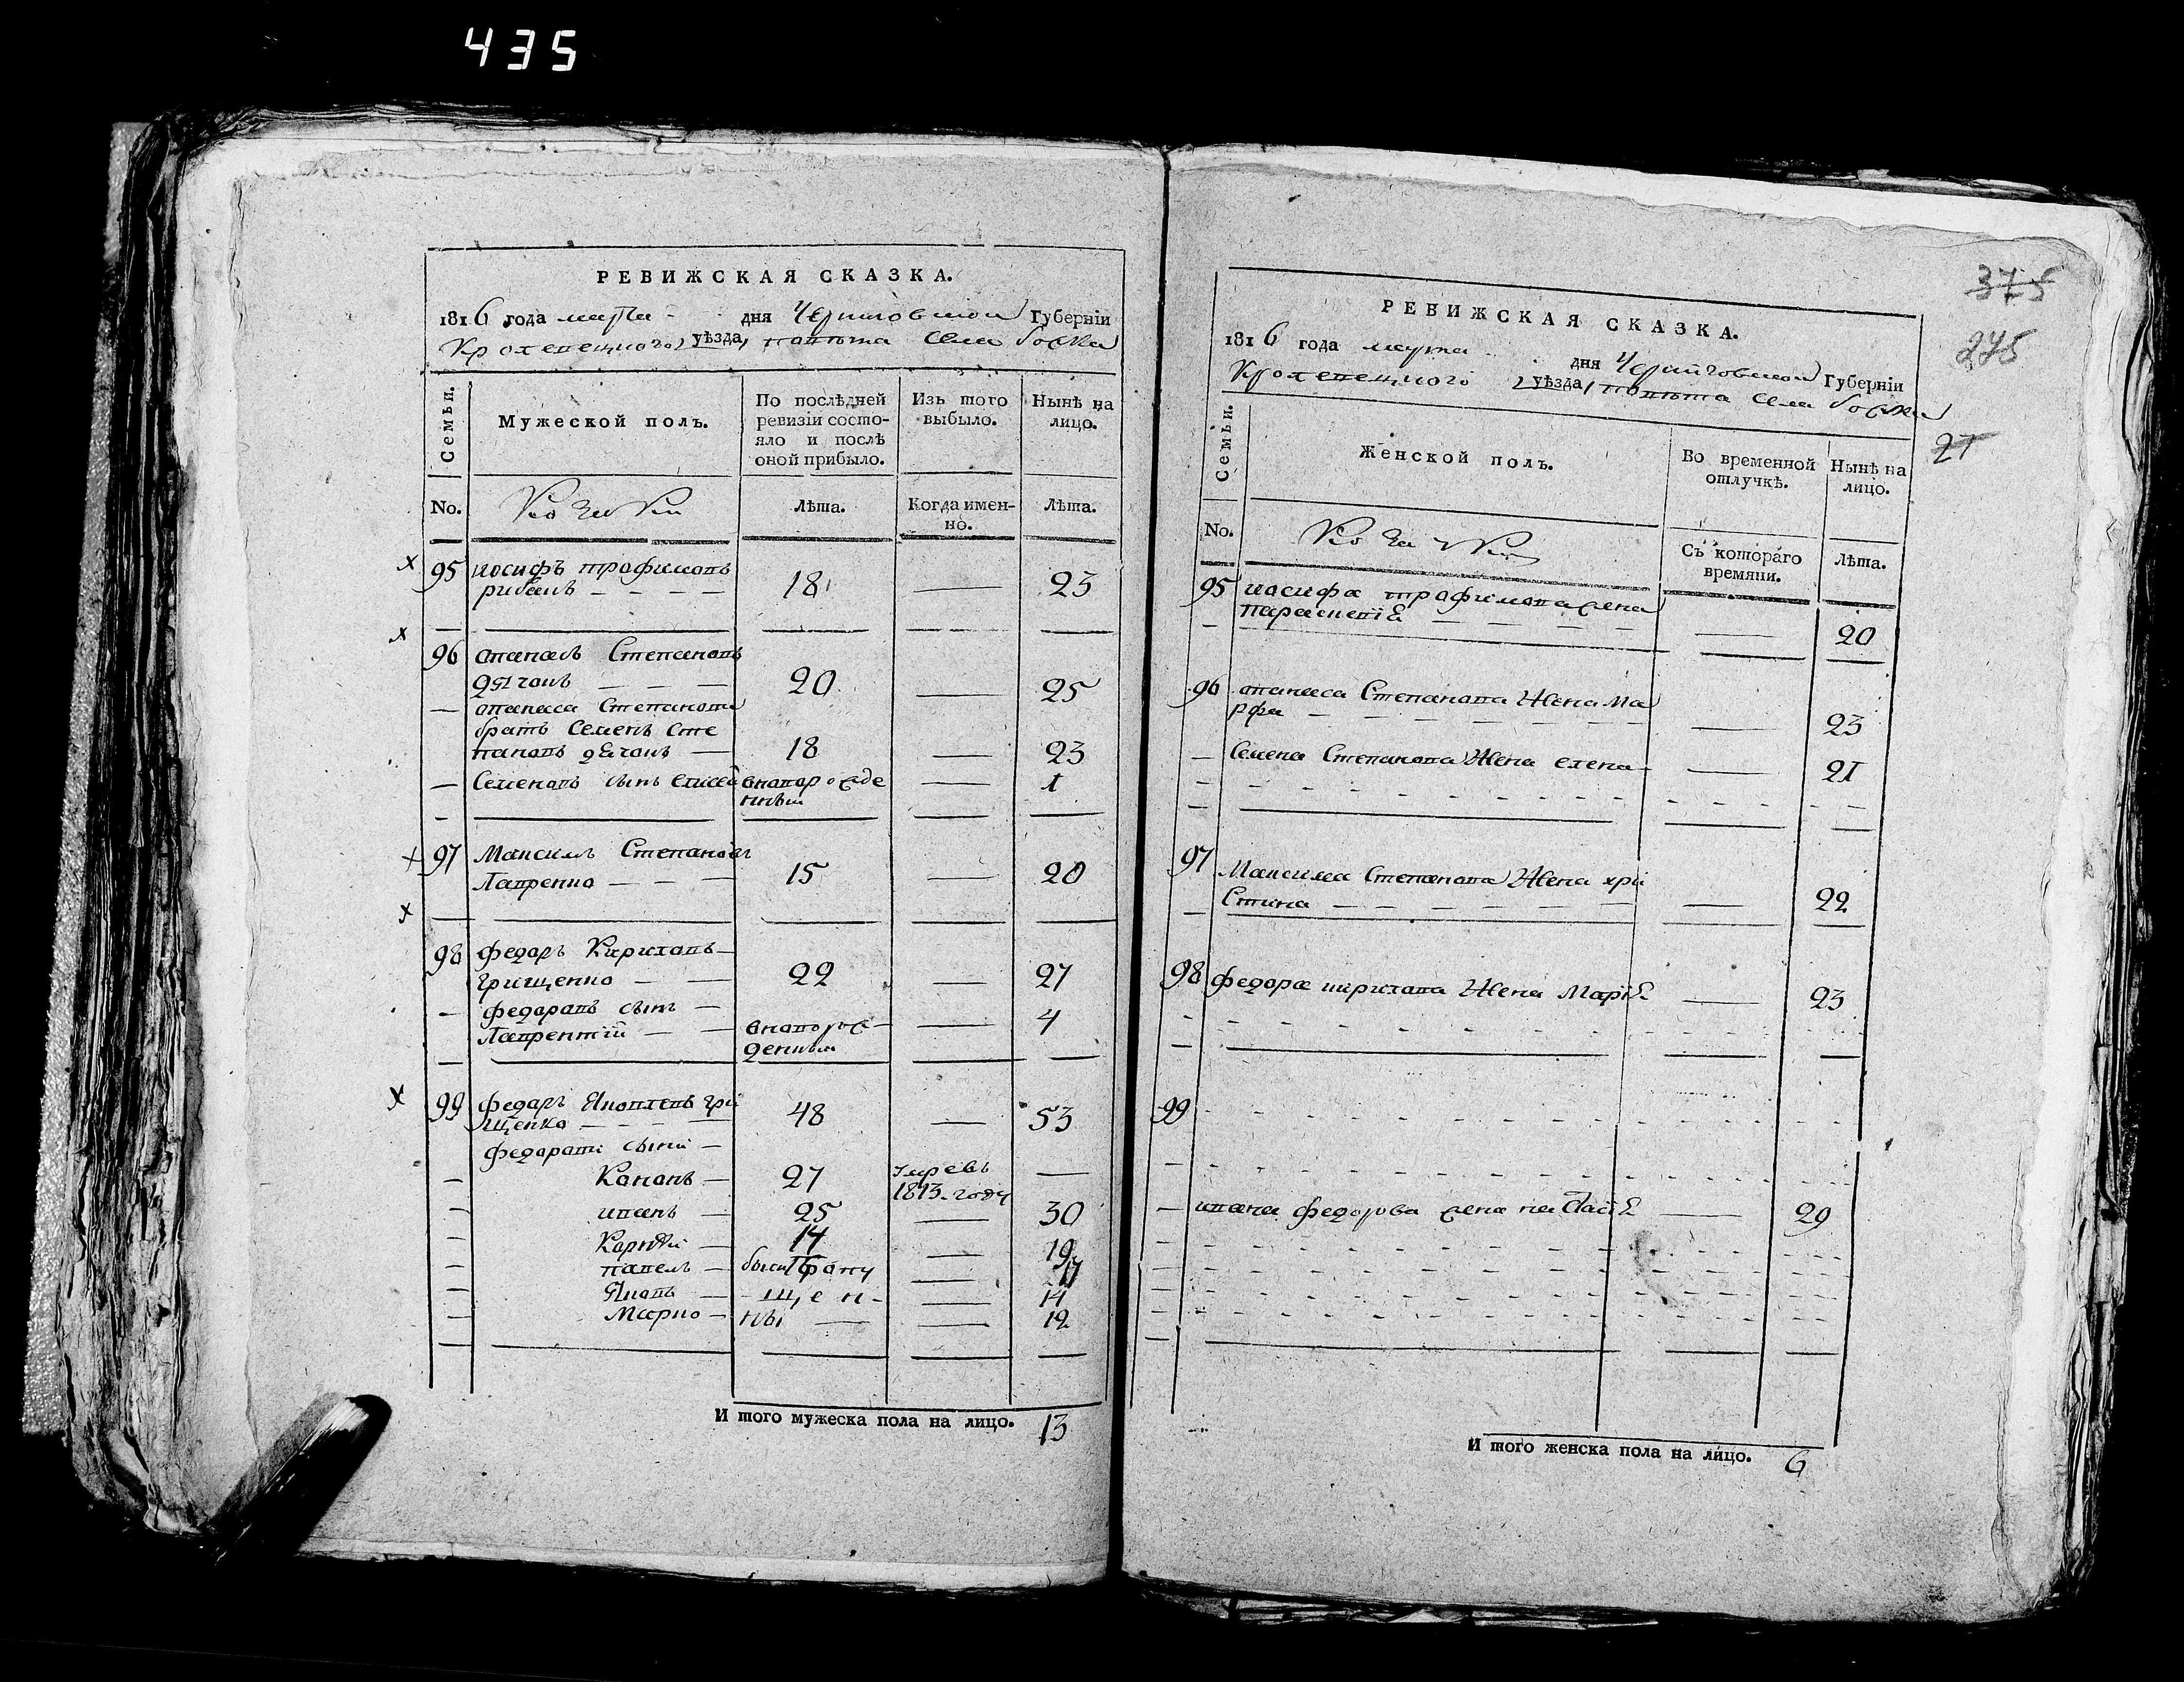 435
РЕВИЖСКАЯ СКАЗКА.
1816 года марта дня Черниговской Губерніи
Кролевецкого уѣзда, повѣта Села
Семьи.
Мужеской полъ.
По послѣдней ревизіи состояло и послѣ оной прибыло.
Изъ того выбыло.
Нынѣ на лицо.
No.
Козаки
Лѣта.
Когда именно.
Лѣта.
95 иосифъ трофимовъ
18 — 23
96 апанасъ Степановъ
дячокъ — — — 20 — 25
— апанаса Степанова
братъ Семенъ Сте
пановъ дячокъ — 18 — 23
— Семеновъ сынъ елисей вноворожде — 1
нный
97 Максимъ Степановъ
Лавренко — — — 15 — 20
98 федоръ Кириловъ —
грищенко — — 22 — 27
— федоровъ сынъ —
Лаврентій — — вноворож — 4
денный
99 федоръ Яковлевъ гри
щенко — — — 48 — 53
федорови сыни —
— Кононъ — 27 умре въ —
1813 году
— иванъ — 25 — 30
— Корнѣй — 14 — 19
— павелъ — были пропу — 17
— Яковъ — ще н- — 14
— Марко — ны — — 12
И того мужеска пола на лицо. 13
375
275
21
РЕВИЖСКАЯ СКАЗКА.
1816 года марта дня Черниговской Губерніи
Кролевецкого уѣзда, повѣта Села
Семьи.
Женской полъ.
Во временной отлучкѣ.
Нынѣ на лицо.
No.
Козачки
Съ котораго времяни.
Лѣта.
95 иосифа трофимова жена
параскевія — — — — — 20
96 апанаса Степанова Жена Ма
рфа — — — — — — 23
— Семена Степанова Жена елена — — 21
97 Максима Степанова Жена хри
Стина — — — — — — 22
98 федора кирилова Жена Марія — 23
99
— ивана федорова жена настасія — 29
И того женска пола на лицо. 6